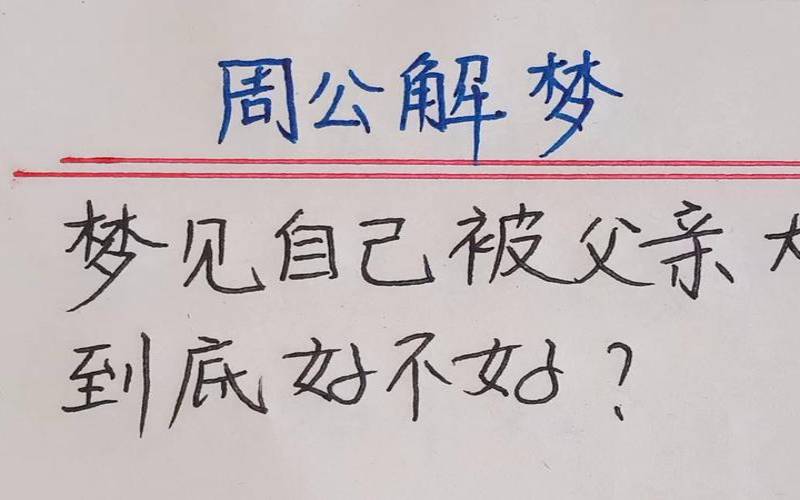 周公解梦
梦见自己被父亲
到底好不好？